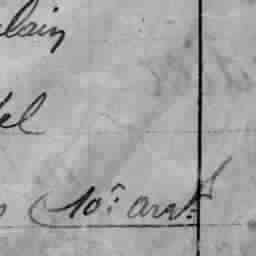 lain
el
(10e arrt.